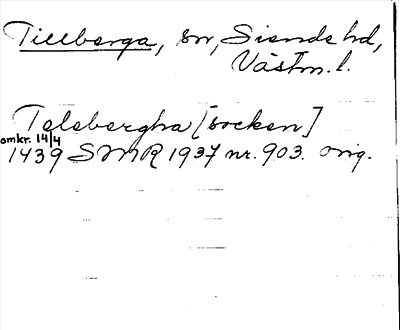 Tillberga, sn, Siende hd,
Västm. l.
Telebergha [socken]
omkr. 14/4
1439 SMR 1937 nr. 903. orig.